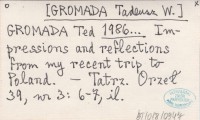 [GROMADA Tadeusz W.]
GROMADA Ted 1986... Im-
pressions and reflections
from my recent trip to
Poland. – Tatrz. Orzeł
39, nr 3: 6-7, il.